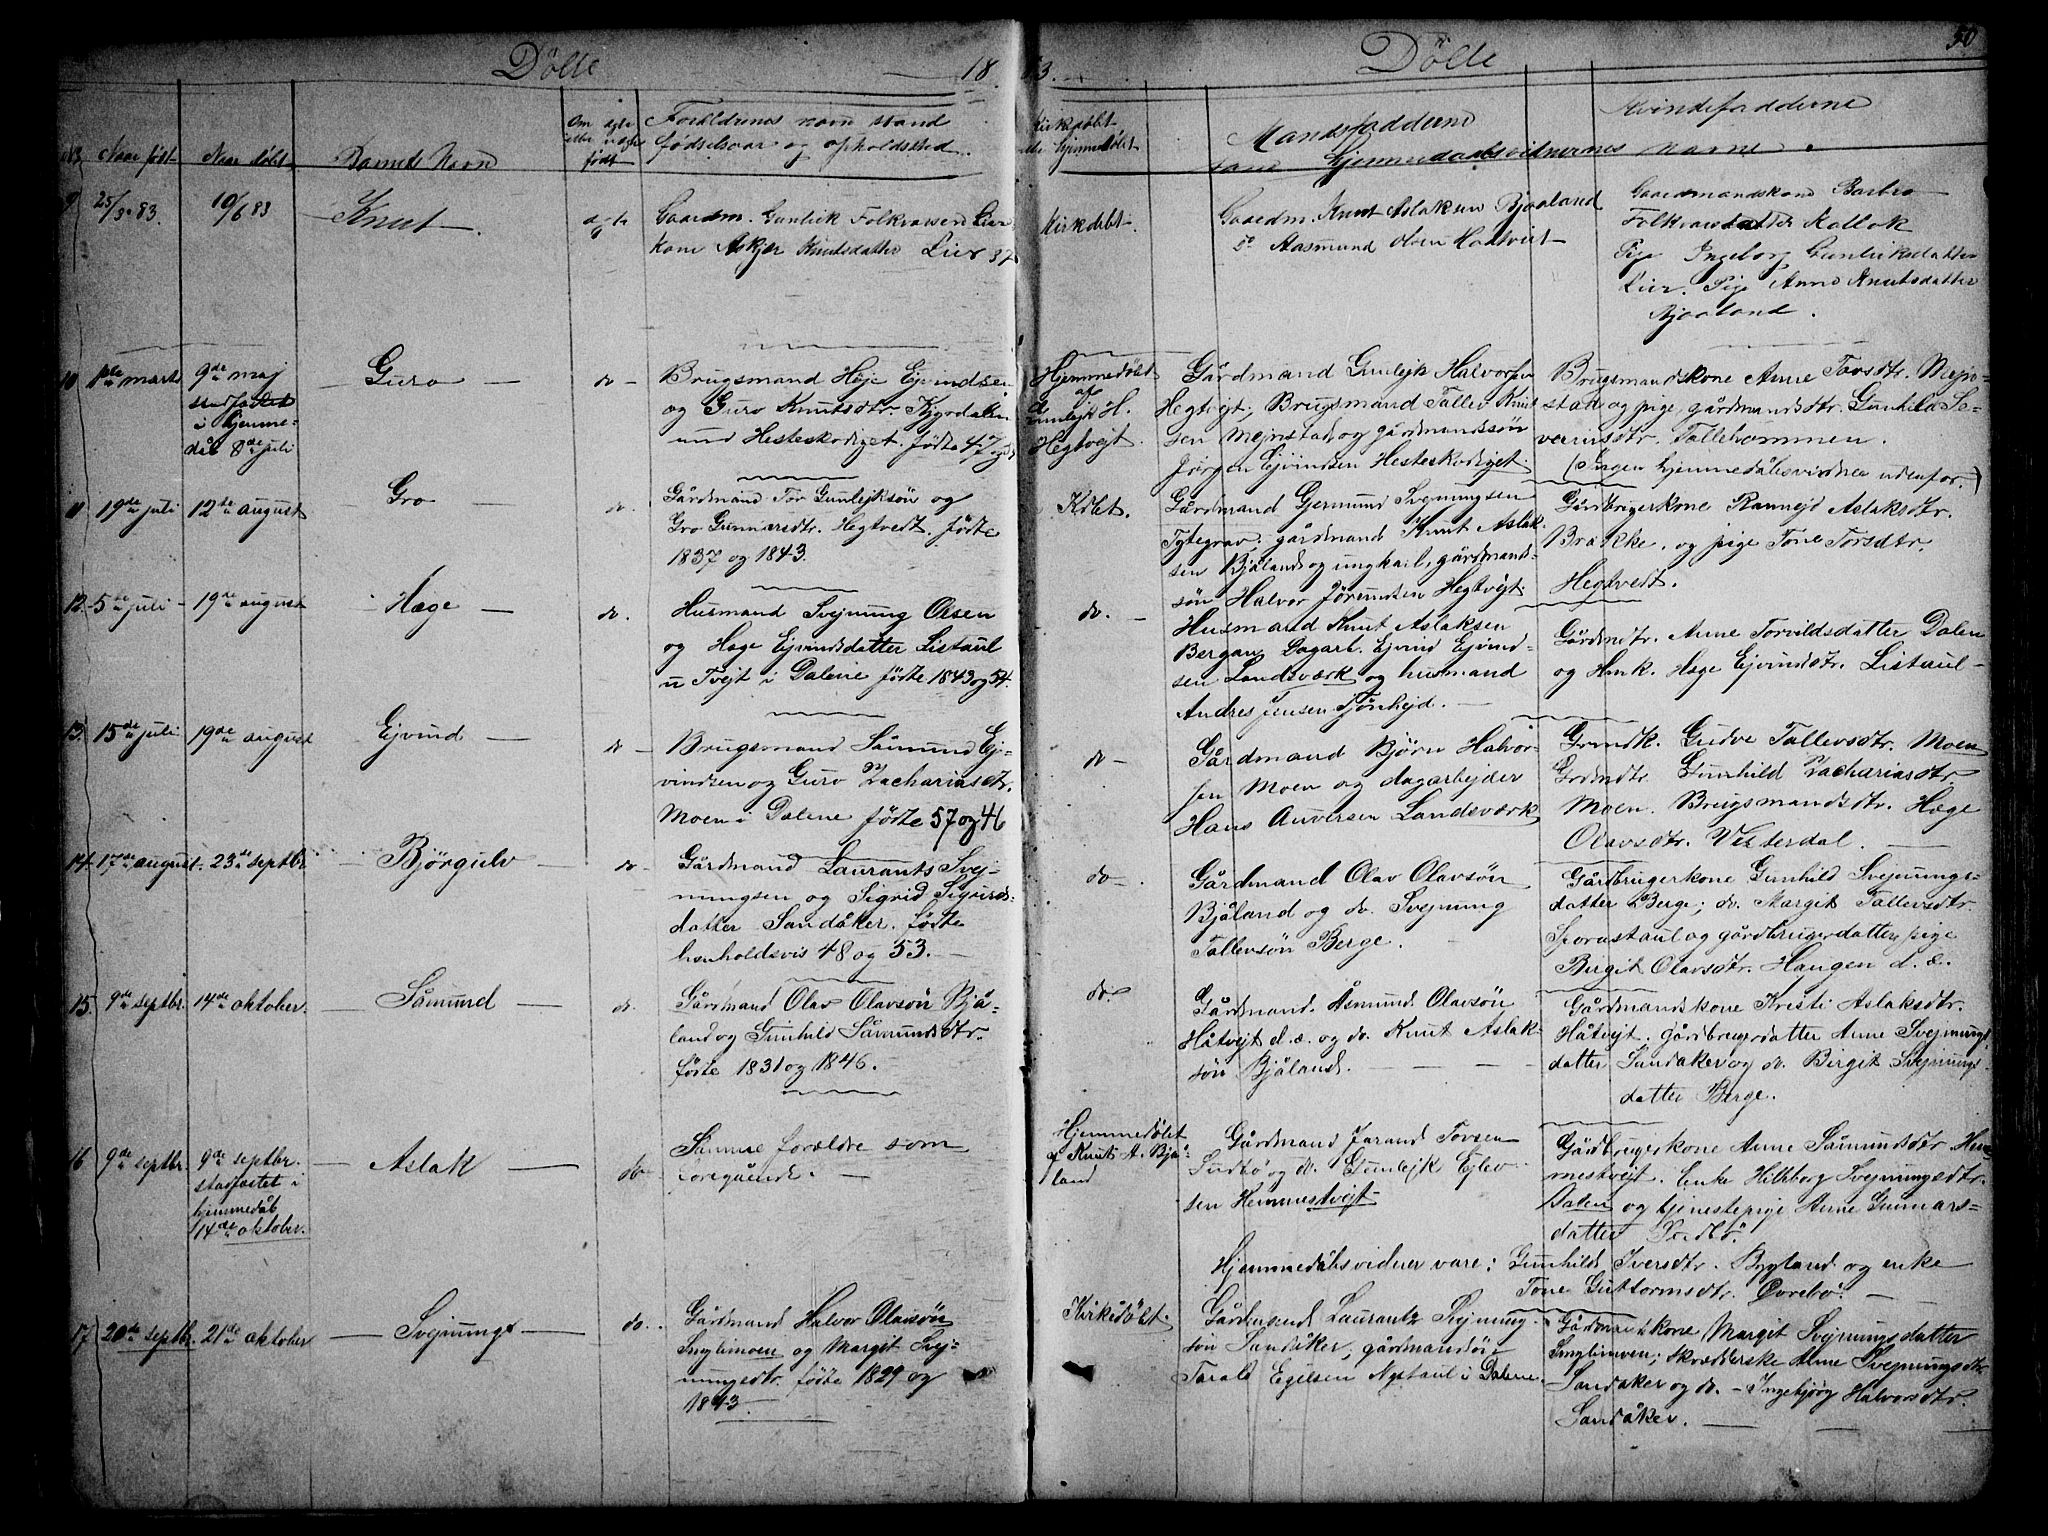 Dölte 18 83. Dölte 50
No. Naar født Naar døbt Barnets Navn
Om ægte eller uægte født
Forældrenes navn stand
fødselsaar og opholdssted.
Kirkedøbt
eller hjemmedøbt
Mandsfadderne
Kvindefadderne
samt hjemmedaabsvidnernes navne.
9 25/3 83. 10/6 83 Knut. ægte
Gaardm. Gunleik Folkvarsen Lier
kone Askjer Knutsdatter Lier 37
Kirkdøbt.
Gaardm. Knut Aslaksen Bjaaland
do Aasmund Olsen Haatveit
Gaardmandskone Barbro
Folkvarsdatter Kollok
Pige Ingeborg Gunleiksdatter
Lier. Pige Anne Knutsdatter
Bjaaland.
10 1ste marts
9de maj
stadfæstet
i hjemme-
dåb 8de juli
Guro do
Brugsmand Heje Ejvindsen
og Guro Knutsdtr. Kjyrdalen
und Hesteskodiget. fødte 47 og
Hjemmedöbt
af
Gunlejk H.
Hegtvejt.
Gårdmand Gunlejk Halvorsen
Hegtvejt; Brugsmand Tallev Knut
sen Mejnstad, og gårdmandssön
Jørgen Ejvindsen Hesteskodiget.
Brugsmandskone Anne Tovsdtr. Mejn-
stad og pige, gårdmandsdtr. Gunhild Se-
verinsdtr. Tallehommen.
(Ingen hjemmedåbsvidner udenfor.)
11 19de juli 12te august Gro do.
Gårdmand Tor Gunlejksön og
Gro Gunnarsdtr. Hegtvedt. fødte
1837 og 1843.
Kdbt.
Gårdmand Gjermund Svejnungsen
Tytegrav; gårdmand Knut Aslak-
sen Bjåland og ungkarl, gårdmands-
sön Halvor Jörundsen Hegtvejt
Gårdbrugerkone Rannejd Aslaksdtr.
Brakke. og pige Tone Torsdtr.
Hegtvedt.
12. 5te juli 19de august Hæge do.
Husmand Svejnung Olsen
og Hæge Ejvindsdatter Listaul
u Tvejt i Dalene fødte 1843 og 54.
do.
Husmand Knut Aslaksen
Bergan, Dagarb. Ejvind Ejvind-
sen Landsværk og husmand
Andres Jensen Tjönhejd.
Gårdmdtr. Anne Torvildsdatter Dalen
og Hmk. Hæge Ejvindsdtr. Listaul
13. 15de juli 19de august Ejvind do
Brugsmand Såmund Ej-
vindsen og Guro Zachariasdtr.
Moen i Dalene fødte 57 og 46
do
Gårdmand Björn Halvor-
sen Moen og dagarbejder
Hans Auversen Landsværk
Grmdk. Gudve Tallevsdtr. Moen
Grdmdtr. Gunhild Zachariasdtr
Moen. Brugsmandsdtr. Hæge
Olavsdtr. Vesterdal.
14. 17de august. 23de septbr. Björgulv do
Gårdmand Laurants Svej-
nungsen og Sigrid Sigurds-
datter Sandåker. fødte
henholdsvis 48 og 53.
do
Gårdmand Olav Olavsön
Bjåland og do. Svejnung
Tallevsön Berge.
Gårdbrugerkone Gunhild Svejnungs-
datter Berge; do. Margit Tallevsdtr.
Sporastaul og gårdbrugerdatter, pige
Birgit Olavsdtr. Haugen d. æ.
15. 9de septbr. 14de oktober. Såmund do.
Gårdmand Olav Olavsön Bjå-
land og Gunhild Såmundsdtr.
fødte 1831 og 1846.
do.
Gårdmand. Åsmund Olavsön
Håtvejt d. æ. og do. Knut Aslak-
sön Bjåland.
Gårdmandskone Kristi Aslaksdtr.
Håtvejt. Gårdbrugerdatter Anne Svejnungs
datter Sandaker og do. Birgit Svejnungs-
datter Berge.
16 9de septbr.
9de septbr.
stadfæstet i
hjemmedåb
14de oktober.
Aslak do
Samme forældre som
foregående.
Hjemmedöbt
af Knut A. Bjå-
land
Gårdmand Jarand Tovsen
Sudbö og do. Gunlejk Ejlev-
sen Hemmestvejt
Gårdbrugerkone Anne Såmundsdtr Hem
mestvejt. Enke Hilleborg Svejnungsdtr.
Dalen og tjenestepige Anne Gunnars-
datter Sudbö.
Hjemmedåbsvidner vare: Gunhild Iversdtr. Bygland og enke
Tone Guttormsdtr. Övrebö.
17 20de septbr. 21de oktober Svejnung do.
Gårdmand Halvor Olavsön
Smylimoen og Margit Svej-
nungsdtr. fødte 1829 og
1843.
Kirkedöbt.
Gårdmand Laurantz Svejnung-
sön Sandåker, gårdmandsön
Tarald Egilsen Nystaul i Dalene
Gårdmandskone Margit Svejnungsdatter
Smylimoen; skrædderske Anne Svejnungsdtr
Sandaker og do. Ingebjörg Halvorsdtr.
Sandåker.